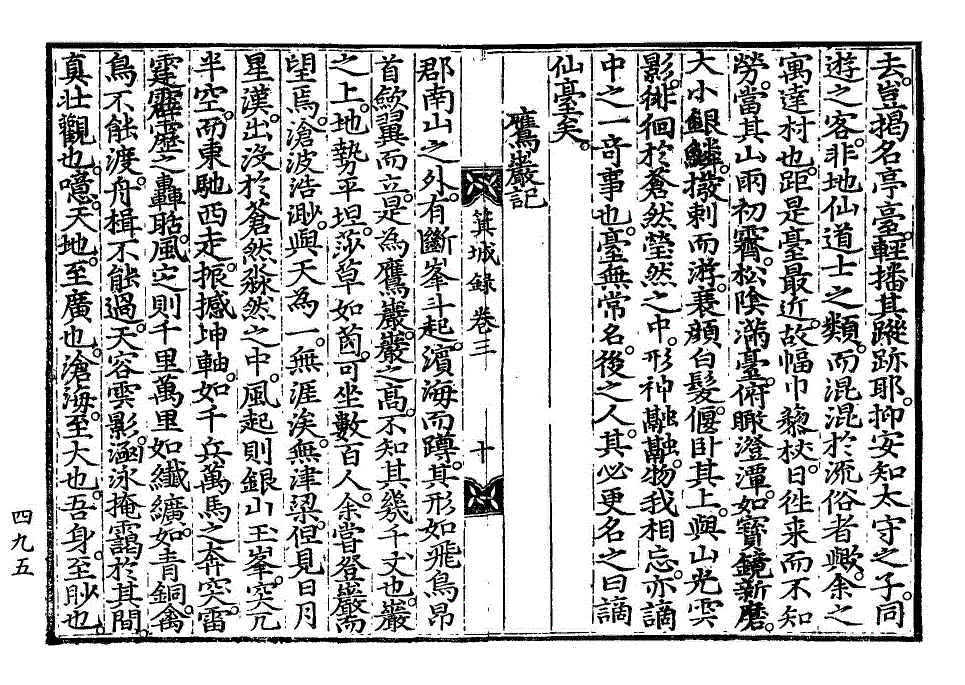 去。豈揭名亭臺。輕播其蹤跡耶。抑安知太守之子。同
遊之客。非地仙道士之類。而混混於流俗者歟。余之
寓達村也。距是臺最近。故幅巾藜杖。日徃来而不知
勞。當其山雨初霽。松陰滿臺。俯瞰澄潭。如寳鏡新磨。
大小銀鱗。撥剌而游。衰顔白髮。偃卧其上。與山光雲
影。徘徊於蒼然瑩然之中。形神融融。物我相忘。亦謫
中之一奇事也。臺無常名。後之人。其必更名之曰謫
仙臺矣。
鷹巖記
郡南山之外。有斷峯斗起。濱海而蹲。其形如飛鳥昂
首歛翼而立。是為鷹巖。巖之高。不知其幾千丈也。巖
之上。地勢平坦。莎草如茵。可坐數百人。余嘗登巖而
望焉。滄波浩渺。與天為一。無涯涘。無津梁。但見日月
星漢。出没於蒼然淼然之中。風起則銀山玉峯。突兀
半空。而東馳西走。振撼坤軸。如千兵萬馬之奔突。雷
霆霹靂之轟䎸。風定則千里萬里如纖纊。如青銅。禽
鳥不能渡。舟楫不能過。天容雲影。涵泳掩靄於其間。
真壯觀也。噫。天地。至廣也。滄海。至大也。吾身。至眇也。
箕城錄 卷三 十
四九五